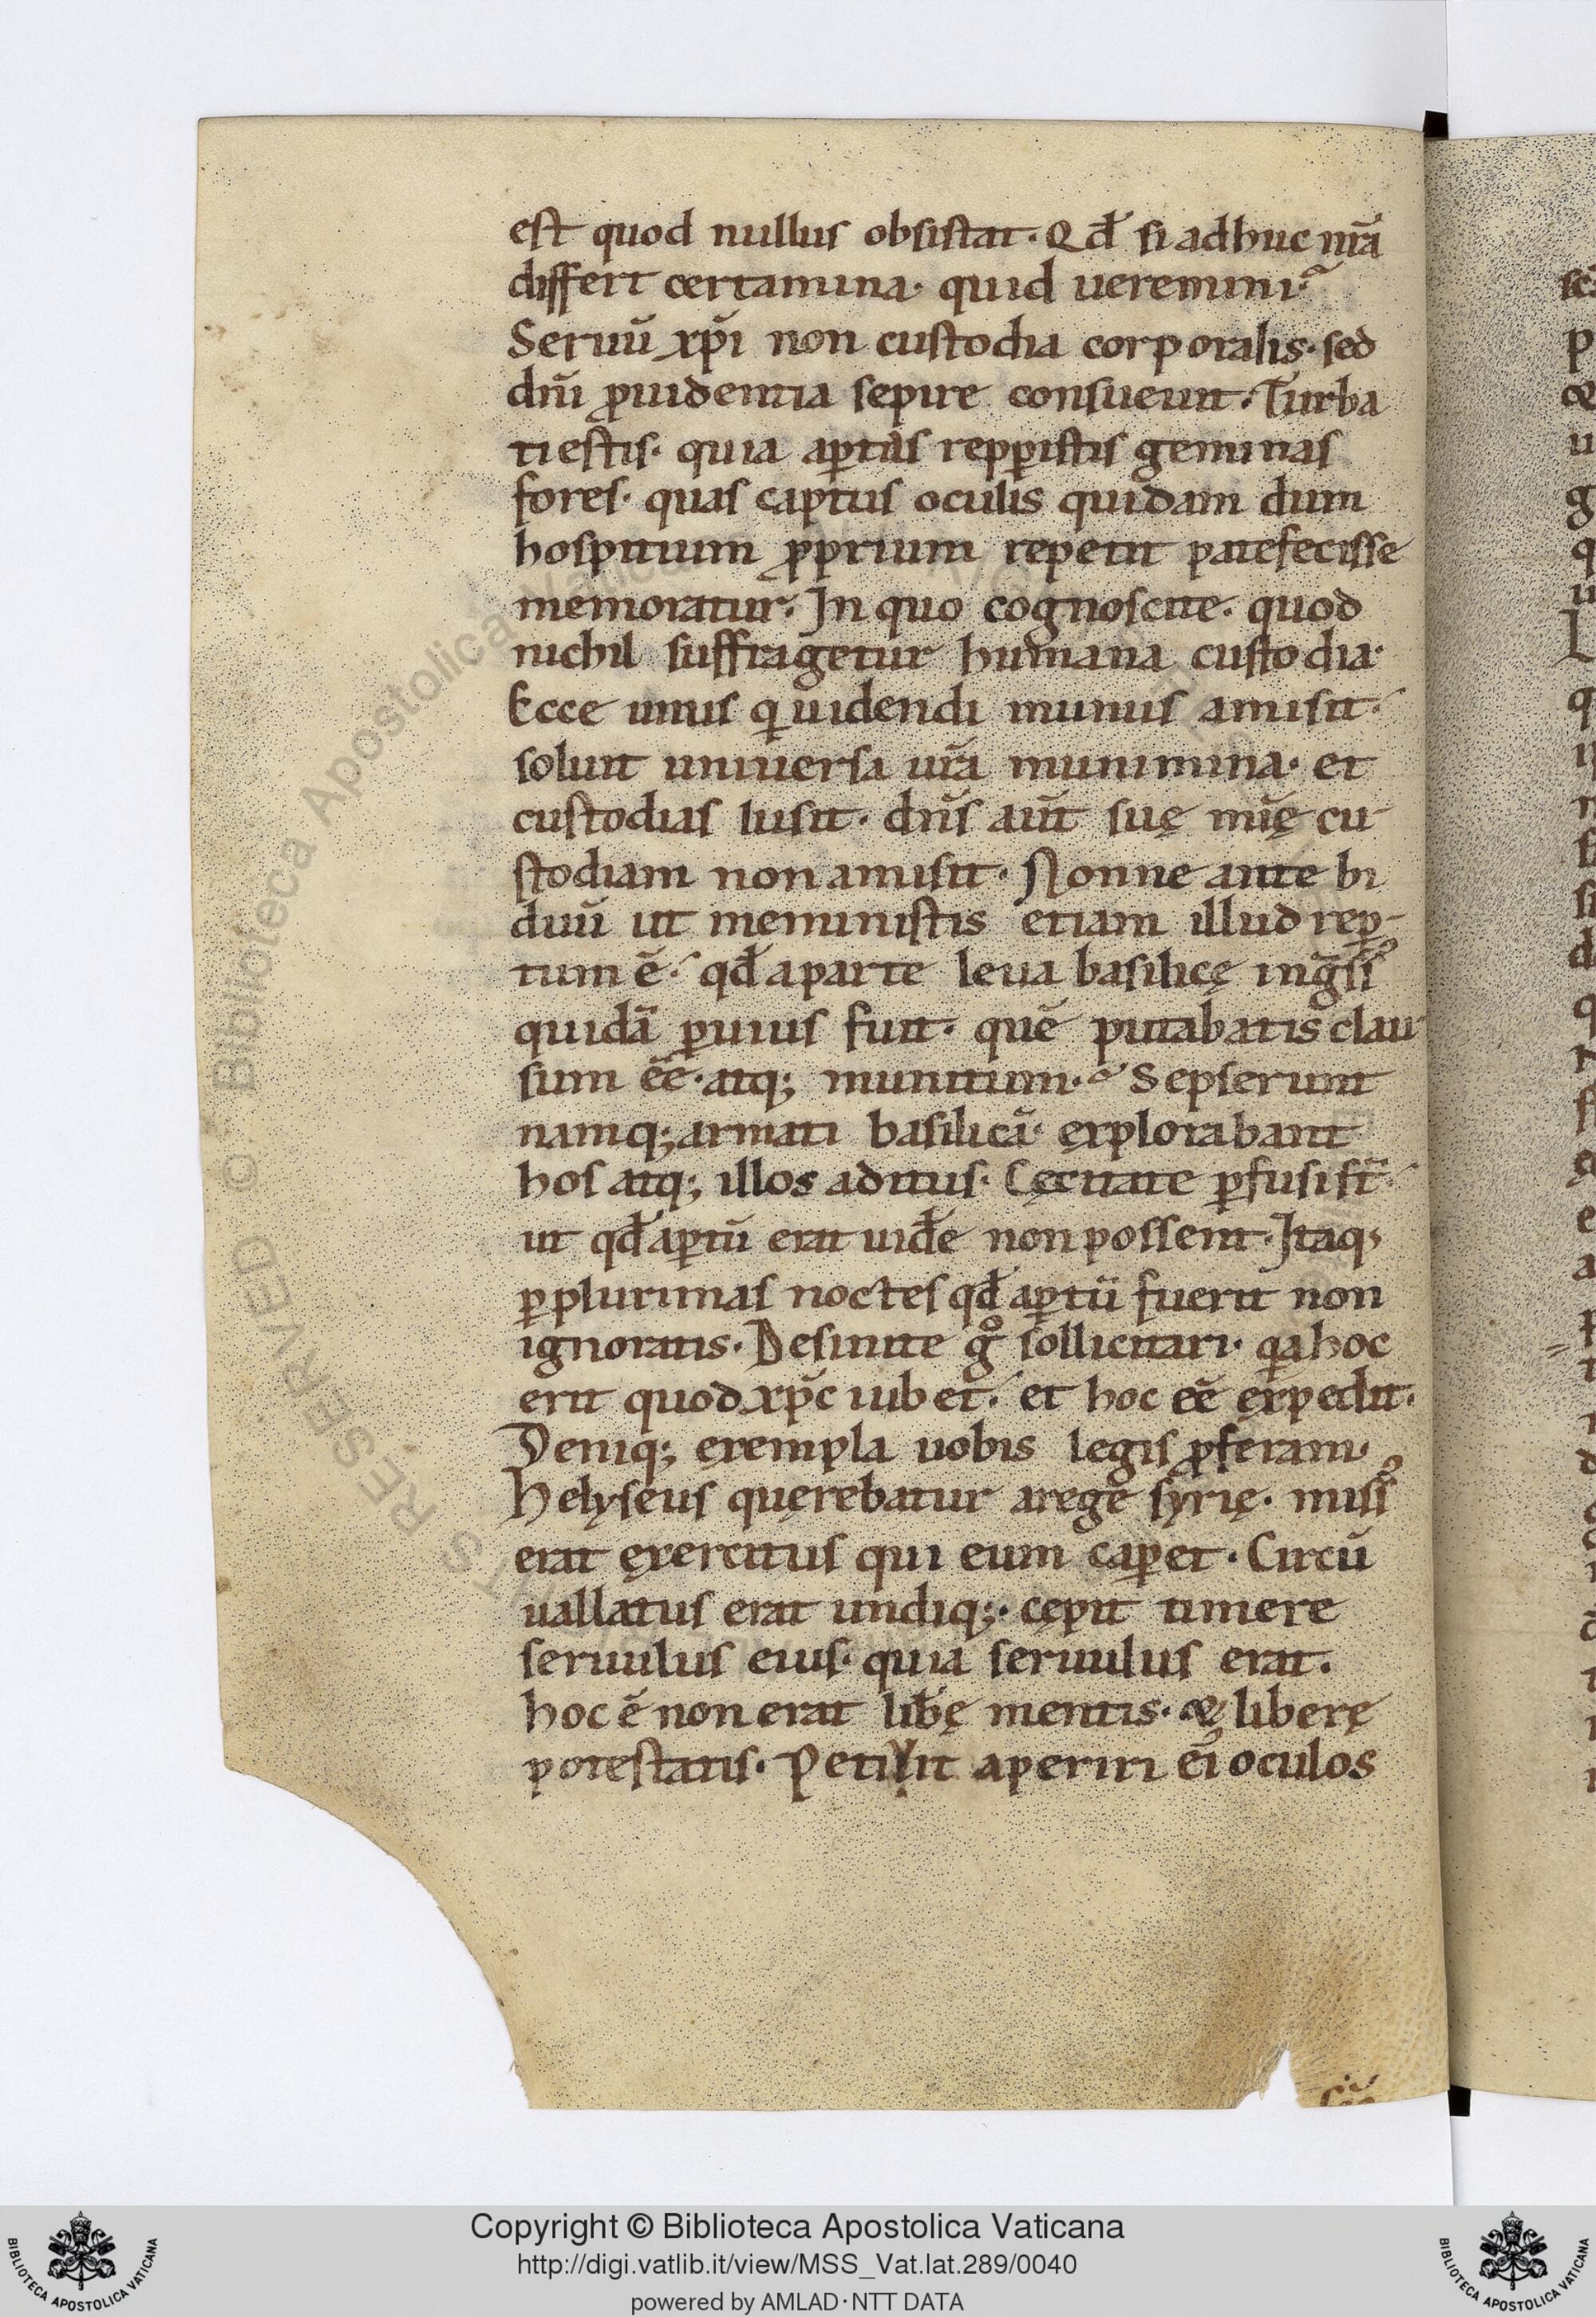 est quod nullus obsistat. Qđ si adhuc nr̃a
differt certamina. quid ueremini?
Seruũ xp̃i non custodia corporalis. sed
dñi ꝓuidentia sepire consueuit. Turba
ti estis. quia aꝑtas repꝑistis geminas
fores. quas captus oculis quidam dum
hospitium ꝓprium repetit patefecisse
memoratur. In quo cognoscite. quod
nichil suffragetur humana custodia.
Ecce unus qͥ uidendi munus amisit.
soluit uniuersa ur̃a munimina. et
custodias lusit. dñs aũt suę mĩę cu-
stodiam non amisit. Nonne ante bi
duũ ut meministis etiam illud rep̱-
tum ẽ. qđ a parte leua basilicę ing̃ssꝰ
quidã ꝑuius fuit. quẽ putabatis clau-
sum ẽẽ. atq; munitum? Sepserunt
namq; armati basilicã. ęxplorabant
hos atq; illos aditus. Cęcitate ꝑfusi sf̃.
ut qđ aꝑtũ erat uid̃e non possent. Itaq;
ꝑ plurimas noctes qđ aꝑtũ fuerit non
ignoratis. Desinite gͦ sollicitari. qͥa hoc
erit quod xp̃c iubet. et hoc ẽẽ ęxpedit.
Deniq; ęxempla uobis legis ꝓferam.
Helyseus quęrebatur a rege syrię. missꝰ
erat ęxercitus qui eum caꝑet. Circũ
uallatus erat undiq;. cępit timere
seruulus eius. quia seruulus erat.
hoc ẽ non erat lib̃ę mentis. & liberę
potestatis. Petiuit aperiri eꝰ oculos
Copyright © Biblioteca Apostolica Vaticana
http://digi.vatlib.it/view/MSS_Vat.lat.289/0040
powered by AMLAD·NTT DATA
BIBLIOTECA APOSTOLICA VATICANA
BIBLIOTECA APOSTOLICA VATICANA